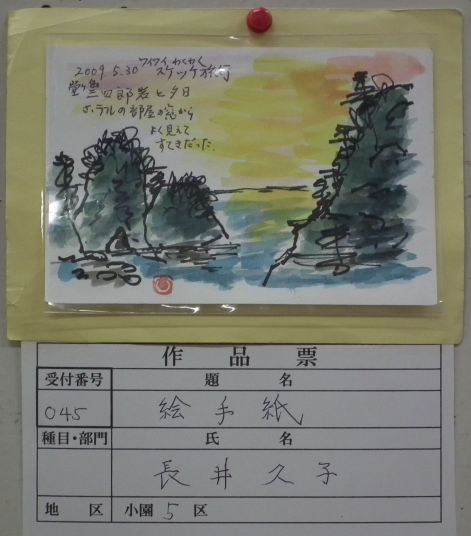 ワイワイわくわく
2009.5.30 スケッチ旅行
堂ヶ島四郎岩と夕日
ホテルの部屋の窓から
よく見えて
すてきだった。
作品票
受付番号 題名
045 絵手紙
種目・部門 氏名
長井久子
地区 小園5区